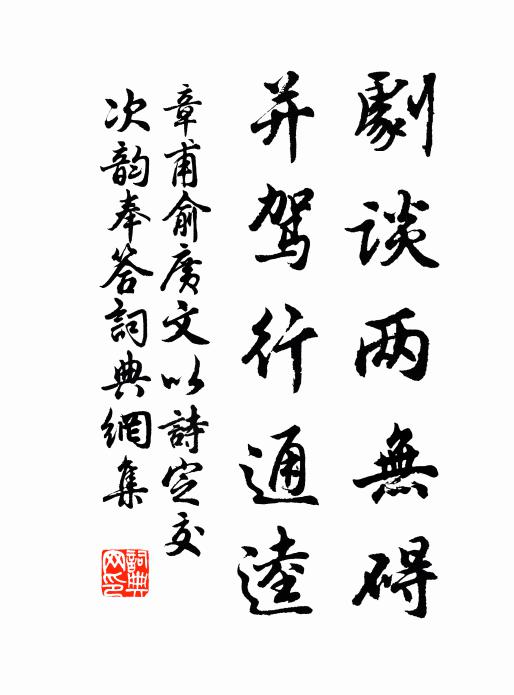 劇谈两無碍
并驾行通逵
章甫俞廣文以詩定交
次韵奉答詞典網集
詞典网印